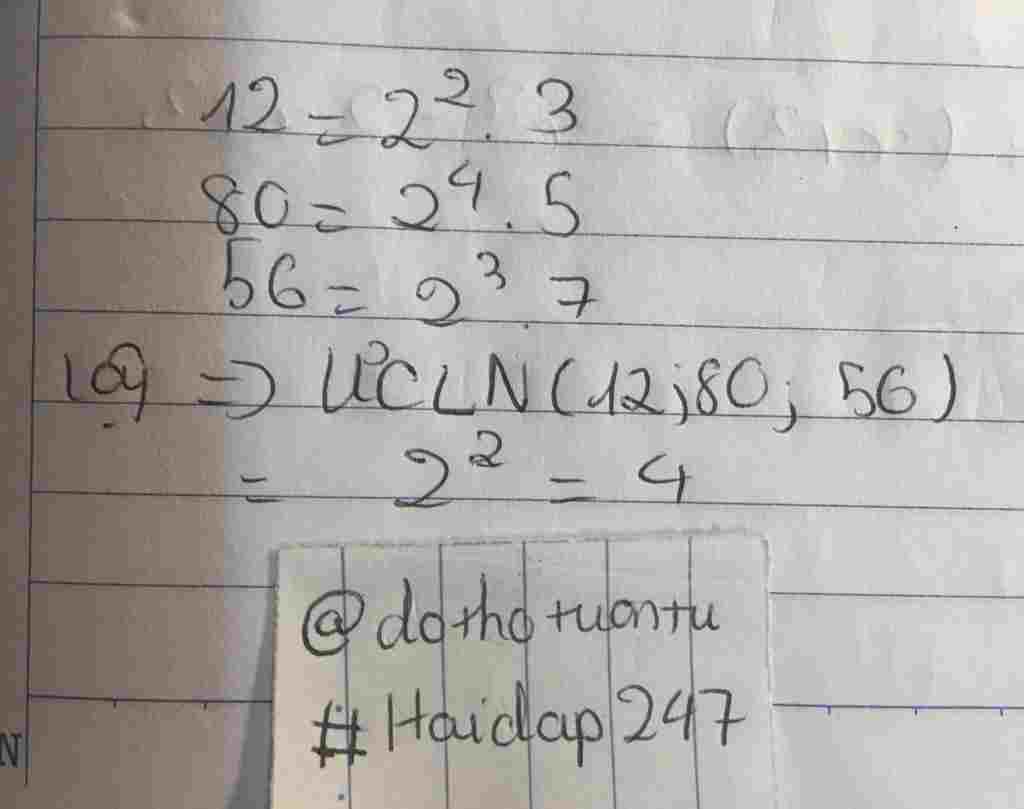 12 = 2². 3
80 = 2⁴. 5
56 = 2³. 7
=> ƯCLN(12;80; 56)
= 2² = 4
@dothotuantu
#Hoidap247
N